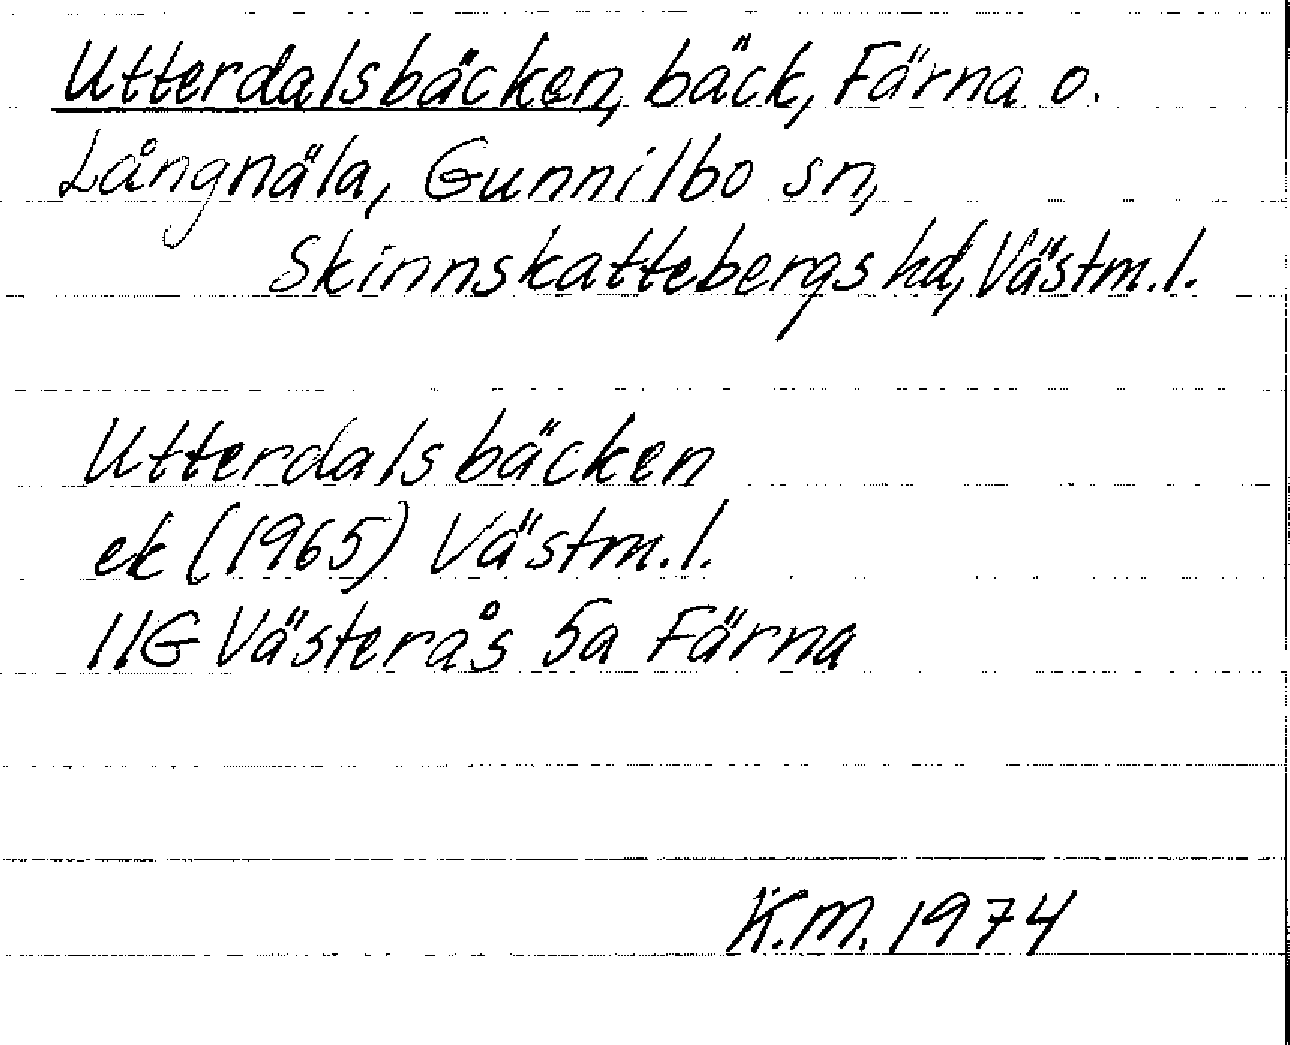 Utterdalsbäcken, bäck, Färna o.
Långnäla, Gunnilbo sn,
Skinnskattebergs hd, Västm.l.
Utterdalsbäcken
ek (1965) Västm.l.
11G Västerås 5a Färna
K.M. 1974